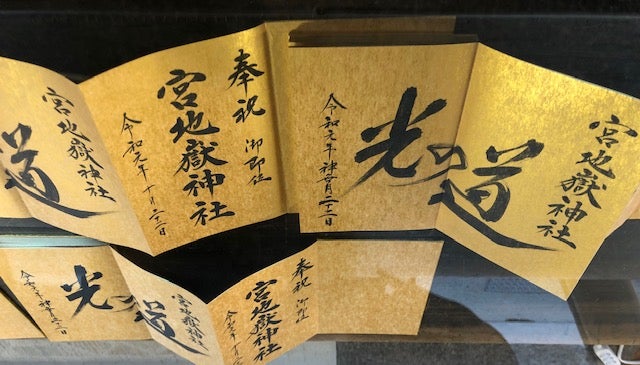 宮地嶽神社
光の道
令和元年
二十二日
奉祝 御即位
宮地嶽神社
令和元年 十月二十二日
宮地嶽神社
道
奉祝
宮地嶽神社
令和元年
宮地嶽神社
光の道
令和元年